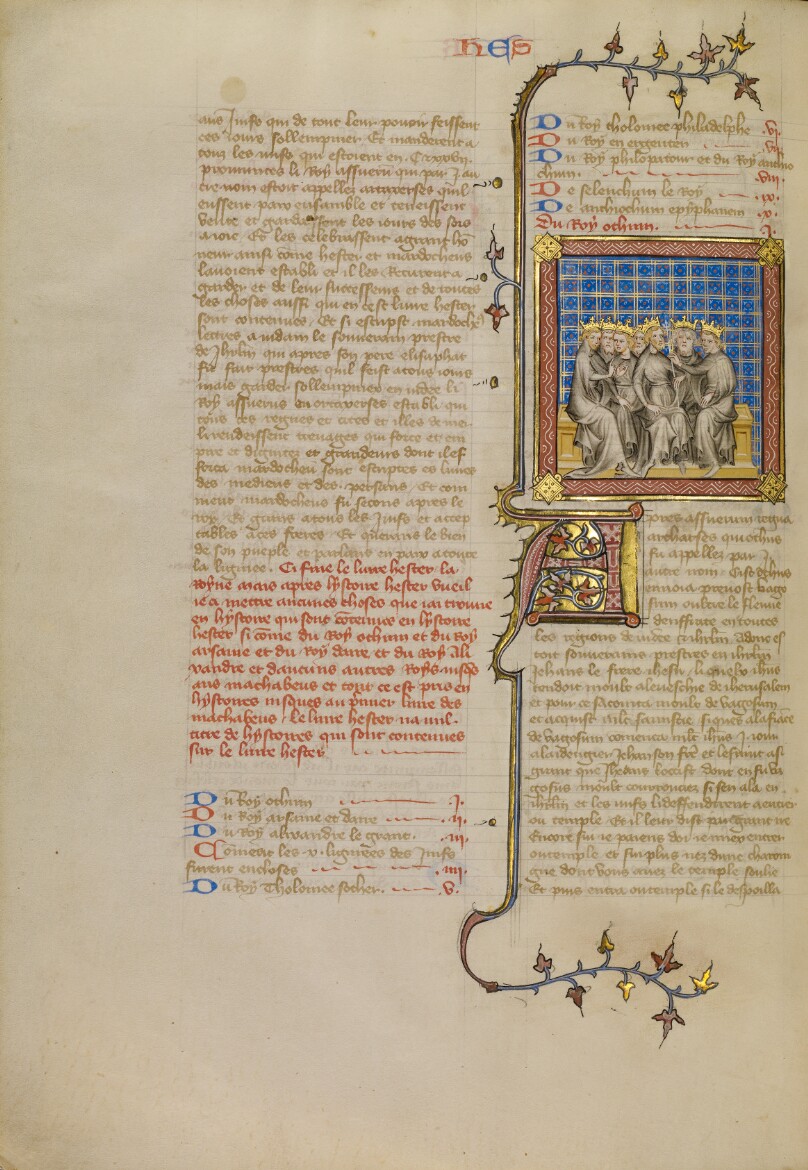 HES
aus Juifs qui de tout leur pouoir feissent
ces iours sollempnier Et manderent a
touz les iuifs qui estoient en .C.xxvii.
prouinces li Roy assueru qui par .i. au
tre nom estoit appellez artaxerses quil
eussent paix ensamble et tenissent
les iours des sors
a ioie Et les celebrassent a grant ho
neur ainsi come hester et mardocheus
lauoient establi et il les Recurent a
garder et de leur successeurs et de toutes
les choses aussi qui en cest liure hester
sont contenues Et si escripst mardoche
lettres a le souuerain prestre
de Jhrlm qui apres son pere elisaphat
fu fait prestres quil feist a tous iours
mais garder sollempnite en iudee li
Roy assuerus ou artaxerses establi que
tous ces regnes et citez et illes de mer
li rendeissent treuages qui force et em
pire et dignitez et grandeurs dont il es
mardocheu sont escriptes es liures
des mediens et des persans Et com
ment mardocheus fu secons apres le
roy Et grans a tous les Juifs et accep
tables a ces freres Et querans le bien
de son pueple et parlans en paix a toute
la lignice. Ci fine le liure hester la
Royne mais apres lystoire hester vueil
ie a mettre aucunes choses que iai trouue
en hystoire qui sont contenues en lystoire
hester si come du Roy ochum et du Roy
arsaine et du Roy daire et du Roy Ali
xandre et daucuns autres Roys iusques
aus machabeus et tout ce est pris en
hystoires iusques au premier liure des
machabeus. Le liure hester na nul
titre de hystoires qui sont contenues
sur le liure hester
Du Roy ochum .i.
Du Roy arsaine et daire .ii.
Du Roy alixandre le grant. .iii.
Coment les .x. lignees des Juifs
furent encloses .iiii.
Du Roy Tholomee sother. .v.
Du Roy tholomee philadelphe .vi.
Du Roy en ergeten .vii.
Du Roy philopatour et du Roy anthio
chum .viii.
De selenchum le Roy .ix.
De anthiochum epyphanem .x.
Du Roy ochum. .i.
Apres assuerum regna
artharses qui ochus
fu appellez par .i.
autre nom. Cist ochus
enuoia preuost vago
sum oultre le fleuue
deufrate en toutes
les regions de iudee et ihrlm Adonc es
toit souuerains prestres en ihrlm
Jehans le frere ihus
tendoit moult a leueschie de iherusalem
et pour ce sacointa moult de vagosum
et acquist
de vagosum
iehan son frere et le frere
que Jhesus
gosus moult courrouciez si sen ala en
ihrlm et les iuifs li deffendirent
ou temple Et il leur dist
Encore sui ie paiens doi ie mie entrer
ou temple et sui plus nez dune charoin
gne dont vous auez le temple soulie
Et puis entra ou temple si le despoilla